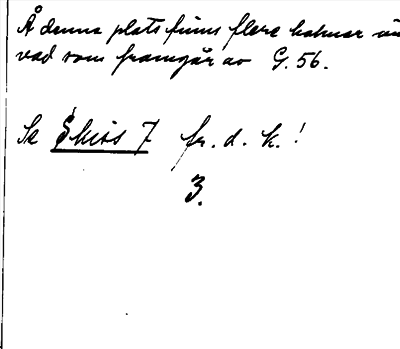 Å denna plats finns flere kolmar än
vad som framgår av G. 56.
Se Skiss 7 fr. d. k.!
3.